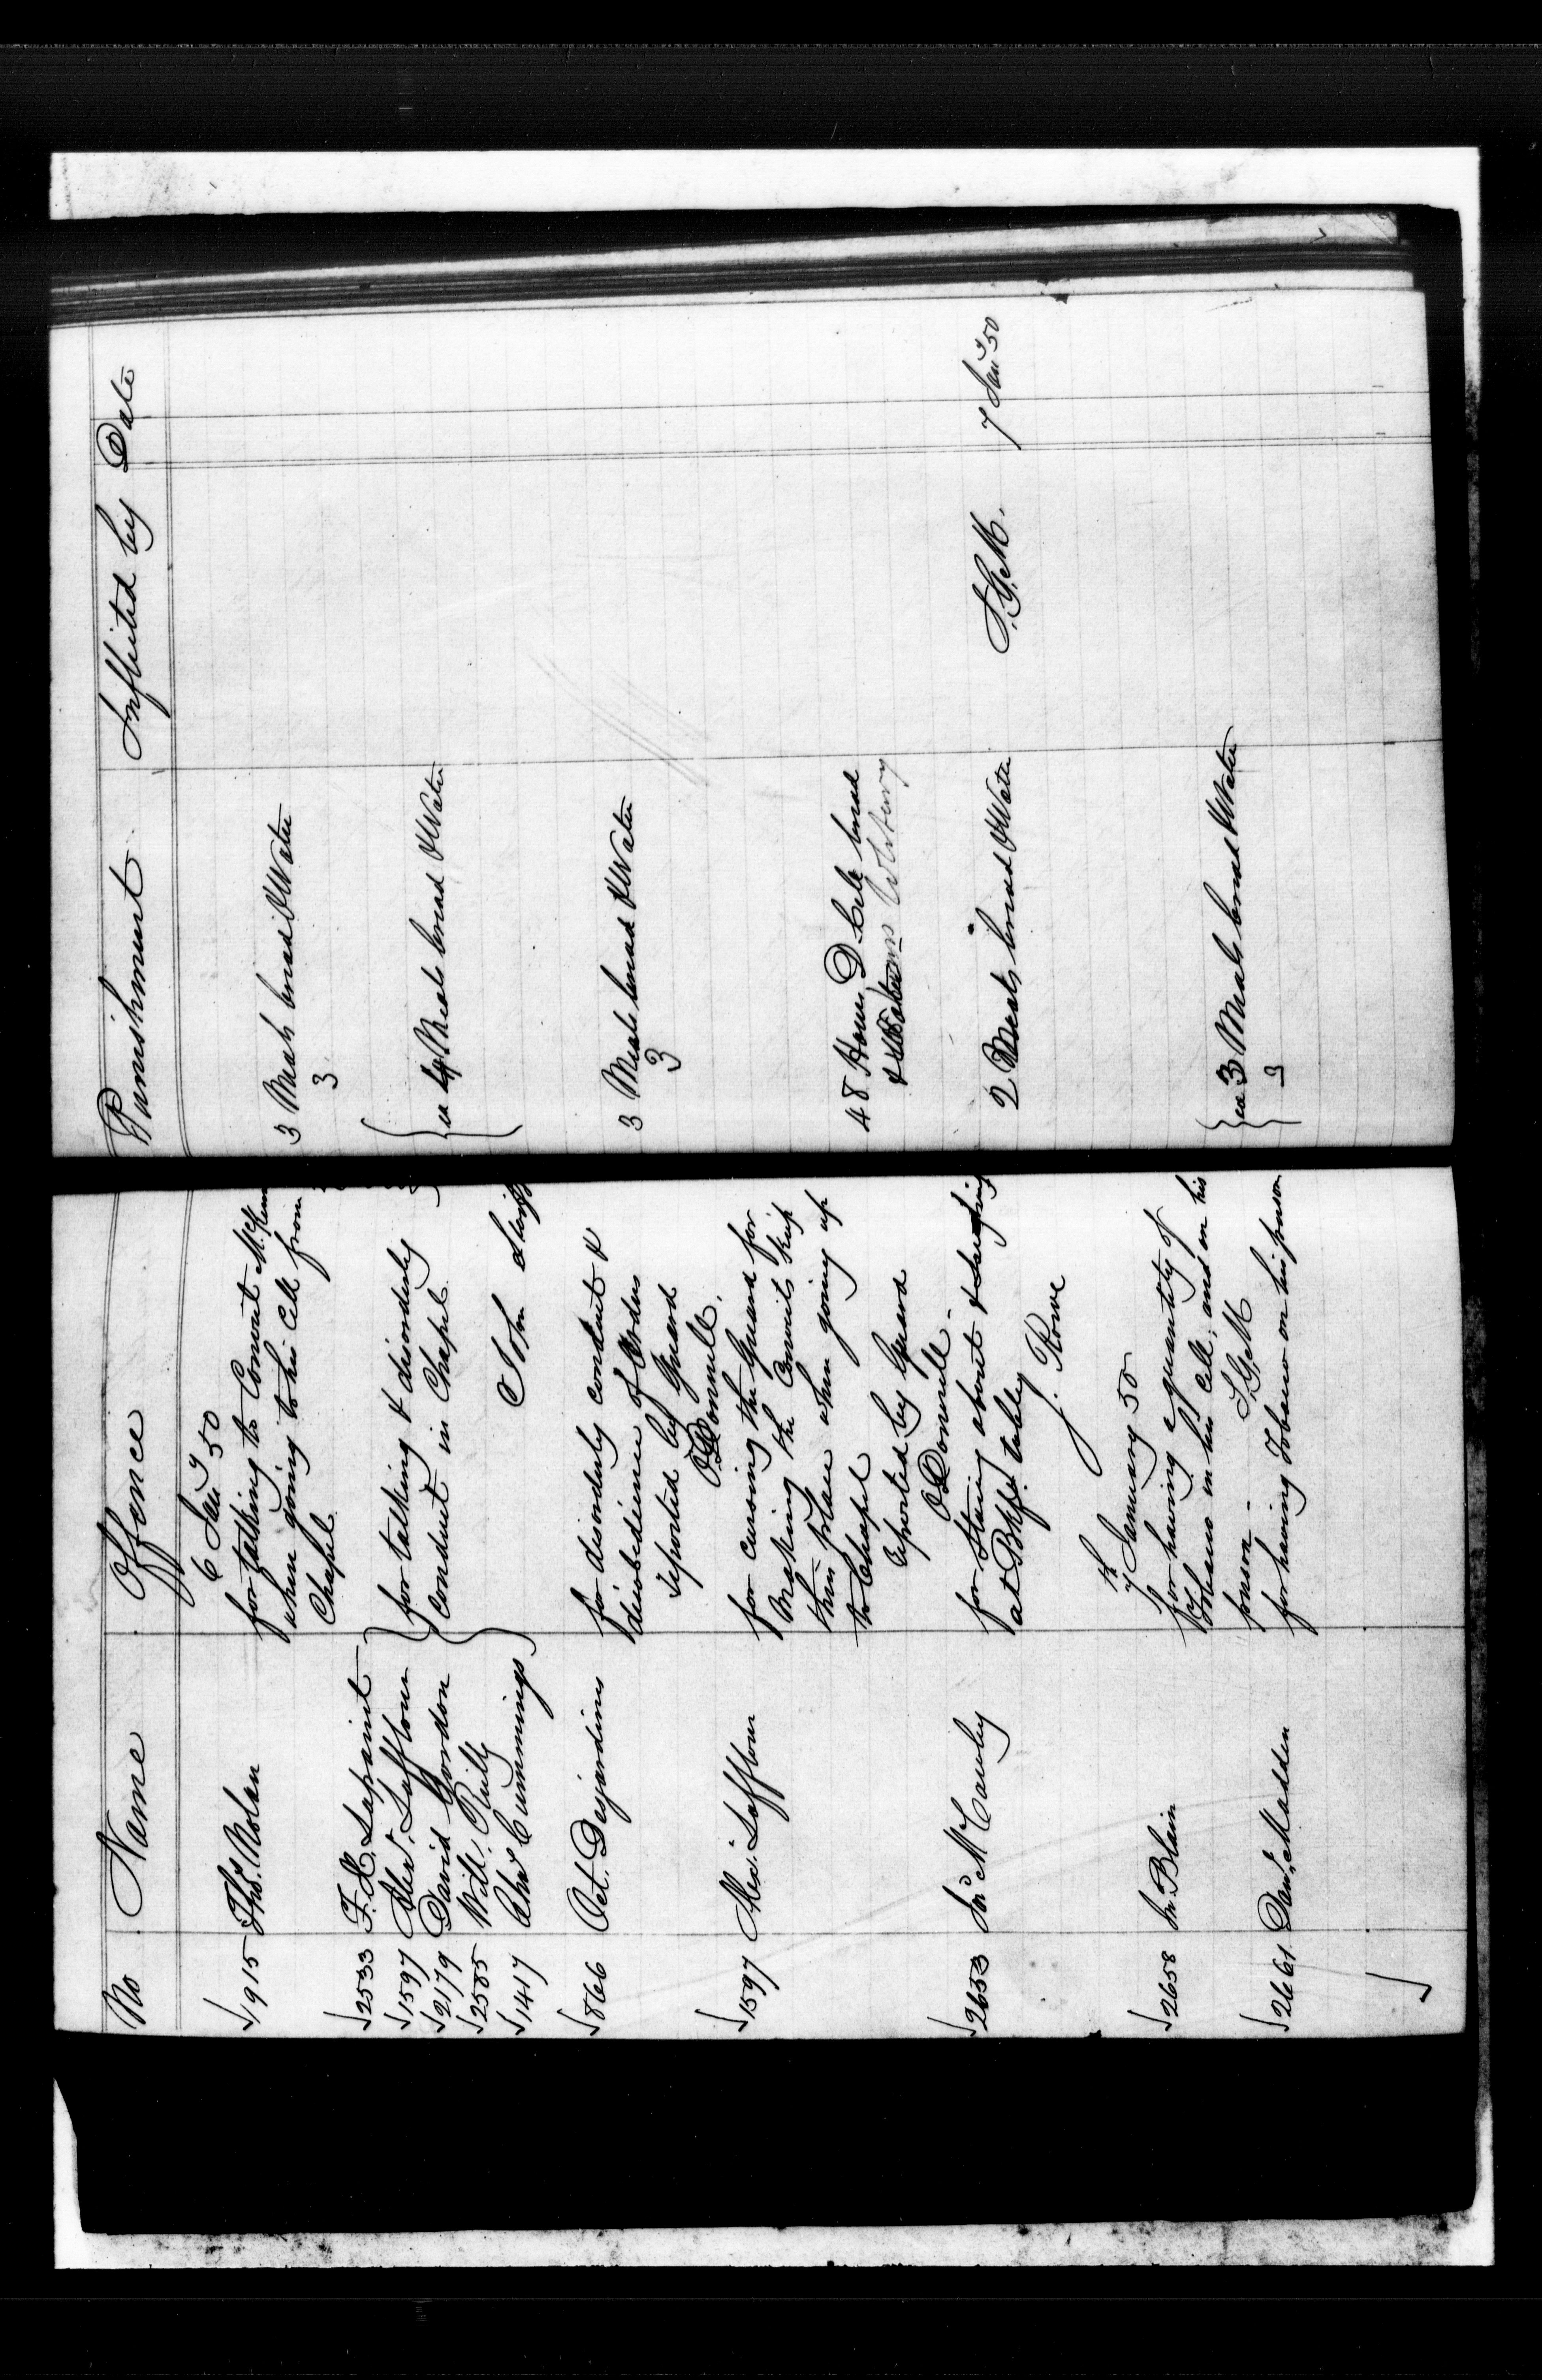 No Name Offence Punishment Inflicted by Date
6 Jany 50
1915 Thos. Nolan for talking to Convict
when going to his Cell from
Chapel
3 Meals bread & Water
3
2533 F. X. Lapoint
1597 Alexr. Laffleur
2179 David Gordon
2585 Will. Reilly
1417 Cummings
for talking & disorderly
Conduct in Chapel
John
4 Meals bread & Water
866 Oct. Desjardins for disorderly conduct &
disobedience of Orders
reported by Guard
O'Donnell.
3 Meals bread & Water
3
1597 Alex. Laffleur for cursing the Guard for
Making the Convicts keep
their place when going up
to Chapel
reported by Guard
O'Donnell
48 Hours D. Cell bread
2653 Jno McCauley for Staring about & Laughing
at Bkft. table
J. Rowe
2 Meals bread & Water S.G.M. 7 Jany 50
7th January 50
2658 Jn. Blain for having a quantity of
Tobacco in his Cell, and on his
person - S.G.M
2661 Danl. Madden for having Tobacco on his person
ea 3 Meals bread & Water
3